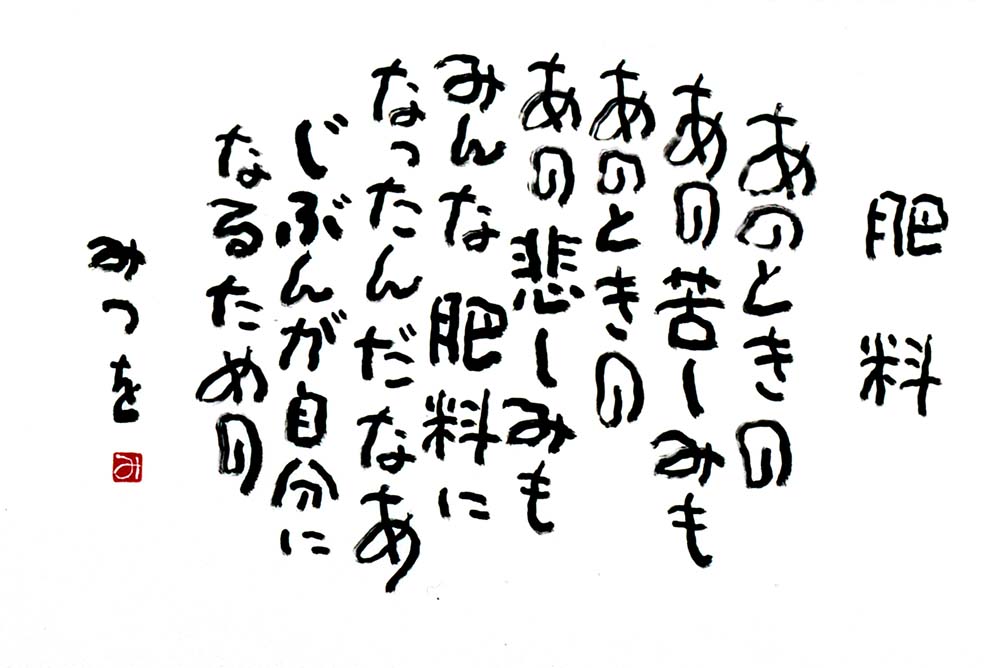 肥料
あのときの
あの苦しみも
あのときの
あの悲しみも
みんな肥料に
なったんだなあ
じぶんが自分に
なるための
みつを
み